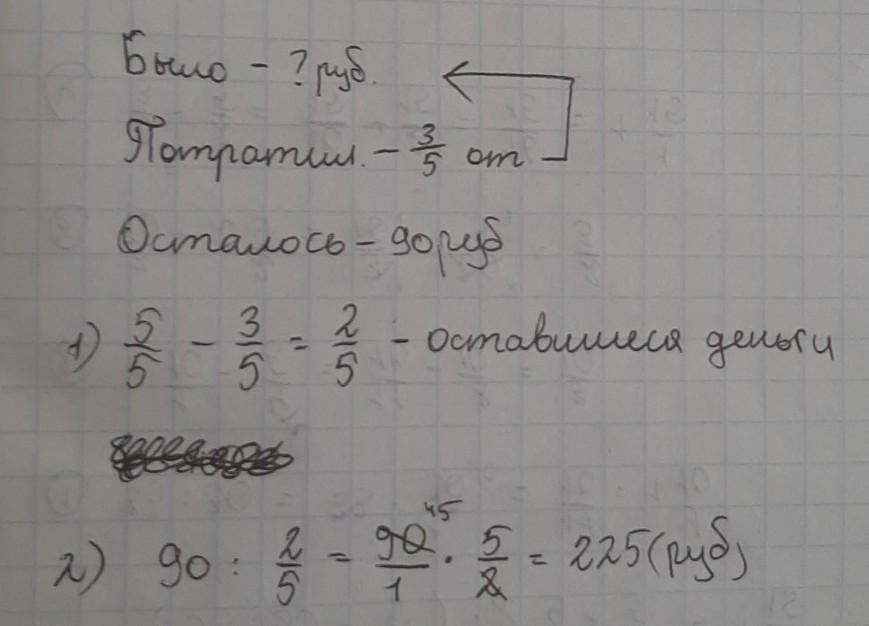 Было - ? руб.
Потратил. - 3/5 от
Осталось - 90 руб
1) 5/5 - 3/5 = 2/5 - оставшиеся деньги
2) 90 : 2/5 = 90/1 45 · 5/2 = 225 (руб)